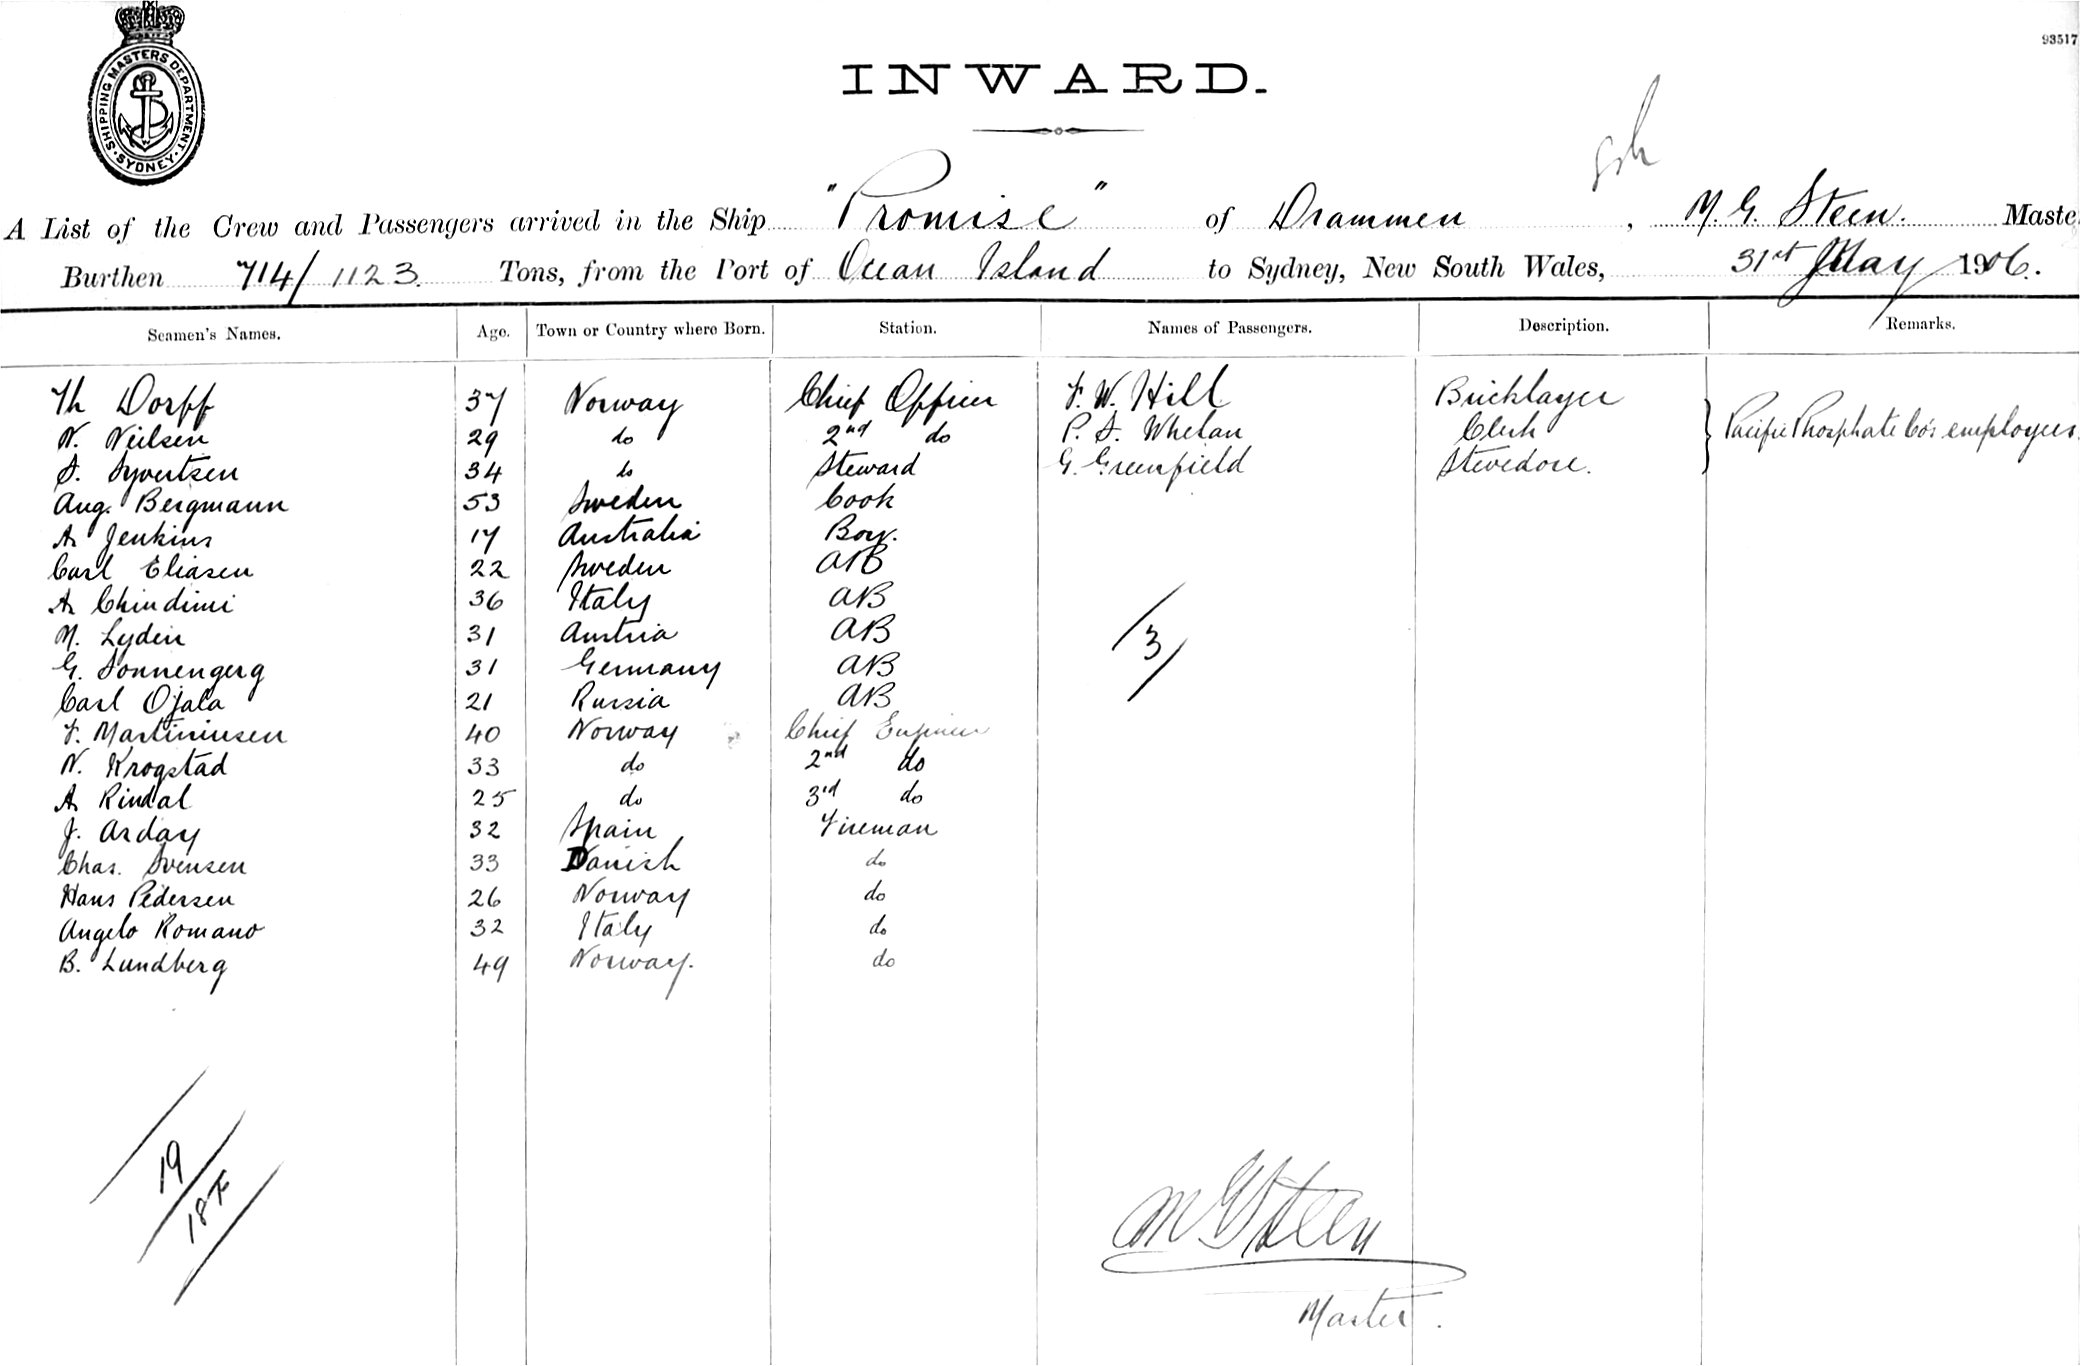 SHIPPING MASTERS DEPARTMENT. SYDNEY
93517
INWARD.
A List of the Crew and Passengers arrived in the Ship "Promise" of Drammen, M. G. Steen. Maste
Burthen 714/1123 Tons, from the Port of Ocean Island to Sydney, New South Wales, 31st May 1906.
Seamen's Names. Age. Town or Country where Born. Station. Names of Passengers. Description. Remarks.
Th Dorff 37 Norway Chief Officer F. W. Hill Bricklayer
N. Neilsen 29 do 2nd do P. S. Whelan Clerk Pacific Phosphate Co's employees.
S. Syvertsen 34 do Steward G. Greenfield Stevedore.
Aug. Bergmann 53 Sweden Cook
A Jenkins 17 Australia Boy.
Carl Eliasen 22 Sweden AB
A Chindimi 36 Italy AB
M. Lydin 31 Austria AB
G. Sonnengerg 31 Germany AB
Carl Ojala 21 Russia AB
F. Martininsen 40 Norway Chief Engineer
N. Krogstad 33 do 2nd do
A Rindal 25 do 3rd do
J. Arday 32 Spain Fireman
Chas. Svensen 33 Danish do
Hans Pedersen 26 Norway do
Angelo Romano 32 Italy do
B. Lundberg 49 Norway. do
3
19
18
M G Steen
Master.